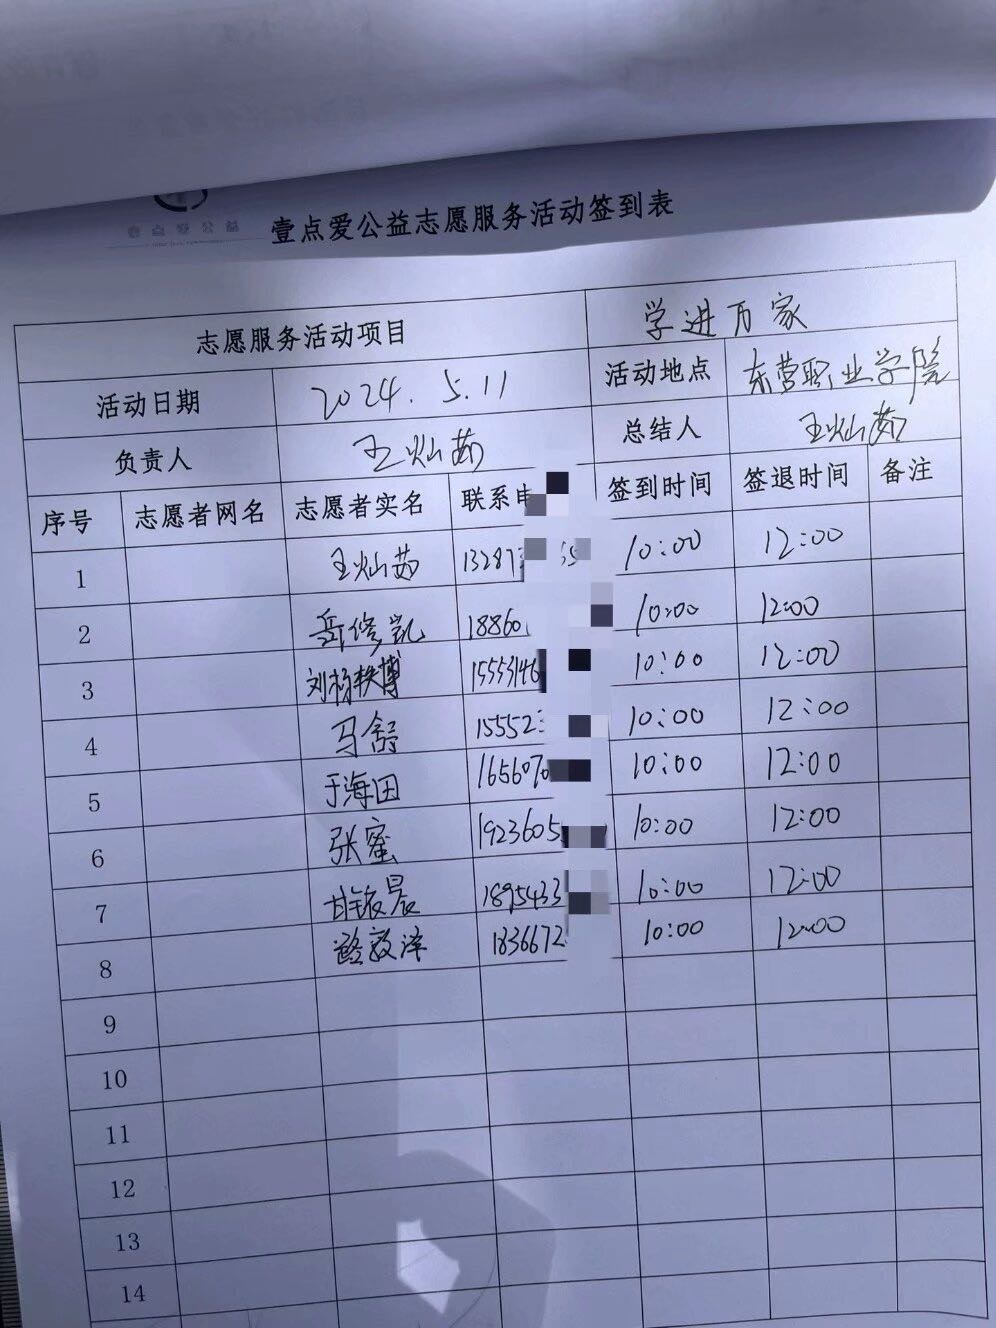 壹点爱公益志愿服务活动签到表
志愿服务活动项目 学进万家
活动日期 2024.5.11 活动地点 东营职业学院
负责人 王灿茹 总结人 王灿茹
序号 志愿者网名 志愿者实名 联系电 签到时间 签退时间 备注
1 王灿茹 13287 55 10:00 12:00
2 岳修凯 18860 10:00 12:00
3 刘杨轶博 15553146 10:00 12:00
4 马舒 15552 10:00 12:00
5 于海田 1656070 10:00 12:00
6 张蜜 1923605 10:00 12:00
7 1895433 10:00 12:00
8 1836672 10:00 12:00
9
10
11
12
13
14